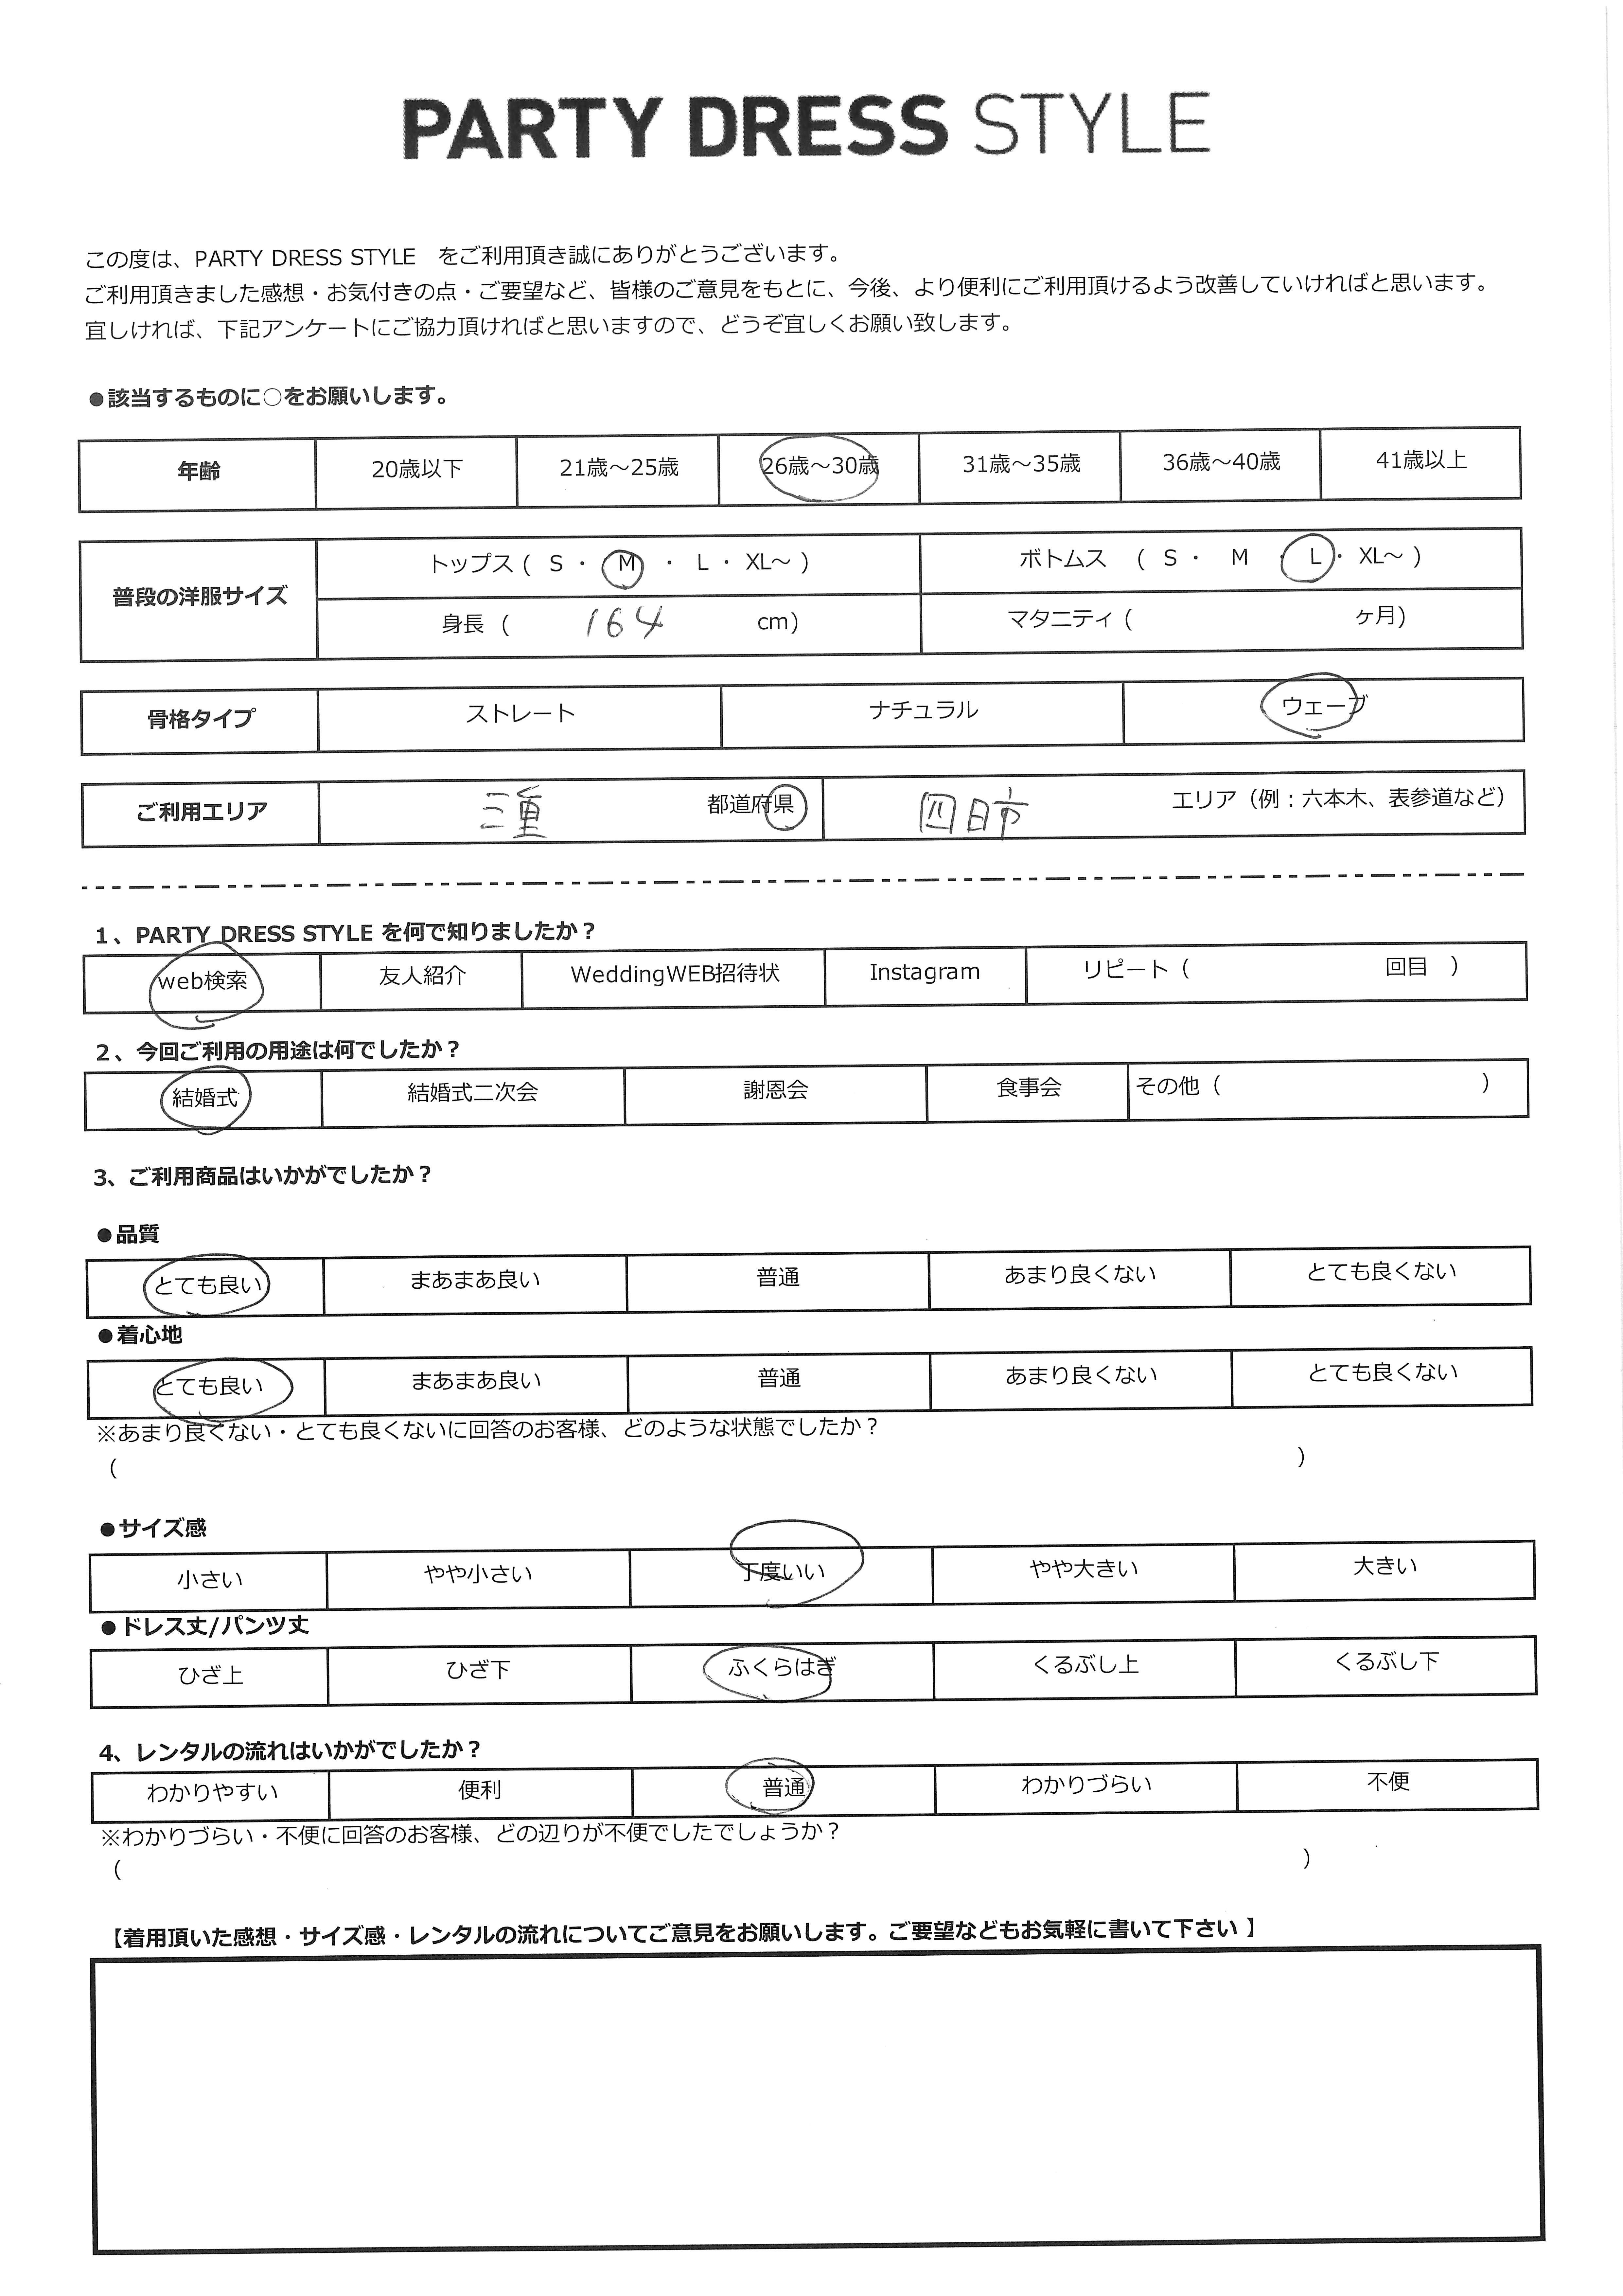 PARTY DRESS STYLE
この度は、PARTY DRESS STYLE　をご利用頂き誠にありがとうございます。
ご利用頂きました感想・お気付きの点・ご要望など、皆様のご意見をもとに、今後、より便利にご利用頂けるよう改善していければと思います。
宜しければ、下記アンケートにご協力頂ければと思いますので、どうぞ宜しくお願い致します。
●該当するものに○をお願いします。
年齢 20歳以下 21歳～25歳 26歳～30歳 31歳～35歳 36歳～40歳 41歳以上
普段の洋服サイズ トップス ( S ・ M ・ L ・ XL～ ) ボトムス ( S ・ M ・ L ・ XL～ )
身長 ( 164 cm) マタニティ ( ヶ月)
骨格タイプ ストレート ナチュラル ウェーブ
ご利用エリア 三重 都道府県 四日市 エリア（例：六本木、表参道など）
1、PARTY DRESS STYLE を何で知りましたか？
web検索 友人紹介 WeddingWEB招待状 Instagram リピート（ 回目 ）
2、今回ご利用の用途は何でしたか？
結婚式 結婚式二次会 謝恩会 食事会 その他（ ）
3、ご利用商品はいかがでしたか？
●品質
とても良い まあまあ良い 普通 あまり良くない とても良くない
●着心地
とても良い まあまあ良い 普通 あまり良くない とても良くない
※あまり良くない・とても良くないに回答のお客様、どのような状態でしたか？
（ ）
●サイズ感
小さい やや小さい 丁度いい やや大きい 大きい
●ドレス丈/パンツ丈
ひざ上 ひざ下 ふくらはぎ くるぶし上 くるぶし下
4、レンタルの流れはいかがでしたか？
わかりやすい 便利 普通 わかりづらい 不便
※わかりづらい・不便に回答のお客様、どの辺りが不便でしたでしょうか？
（ ）
【着用頂いた感想・サイズ感・レンタルの流れについてご意見をお願いします。ご要望などもお気軽に書いて下さい 】